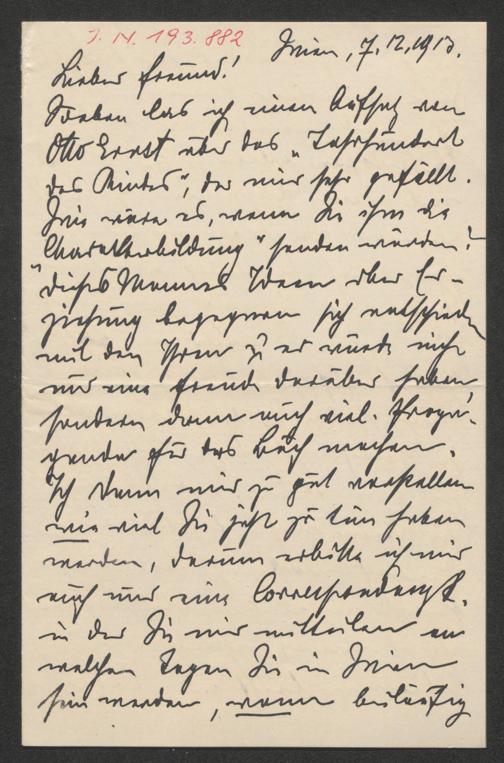 J.N. 193.882
Wien, 7.12.1913.
Lieber Freund!
Soeben las ich einen Aufsatz von
Otto Ernst über das „Jahrhundert
des Kindes", der mir sehr gefällt.
Wie wäre es, wenn Sie ihm die
„Charakterbildung" senden würden?
Dieses Mannes Ideen über Er-
ziehung begegnen sich entschieden
mit den Ihren u. er würde nicht
nur eine Freude darüber haben,
sondern dann auch viel Propa-
ganda für das Buch machen.
Ich kann mir zu gut vorstellen
wie viel Sie jetzt zu tun haben
werden, darum erbitte ich mir
auch nur eine Correspondenzk.
in der Sie mir mitteilen an
welchen Tagen Sie in Wien
sein werden, wann beiläufig